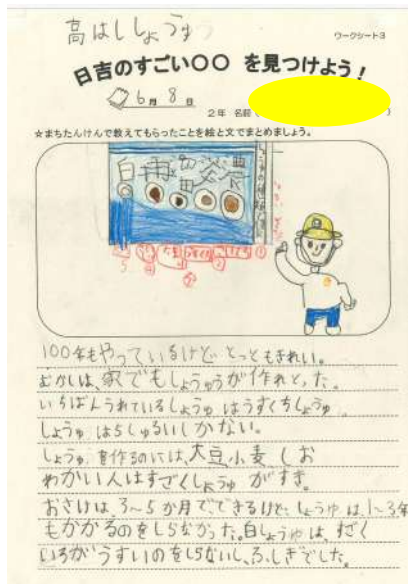 高はししょうゆ
ワークシート3
日吉のすごい〇〇 を見つけよう！
6月 8日
2年 名前（ ）
☆まちたんけんで教えてもらったことを絵と文でまとめましょう。
白 再 淡 濃
100年もやっているけど とってもきれい。
むかしは、家でもしょうゆうが作れとった。
いちばんうれているしょうゆ はうすくちしょうゆ
しょうゆ は5しゅるいしかない。
しょうゆ を作るのには、大豆小麦 しお
わかい人はすごくしょうゆ がすき。
おさけは、3〜5か月でできるけど、しょうゆ は、1〜3年
もかかるのをしらなかった。白しょうゆは、すごく
いろがうすいのをしらないし、ふしぎでした。